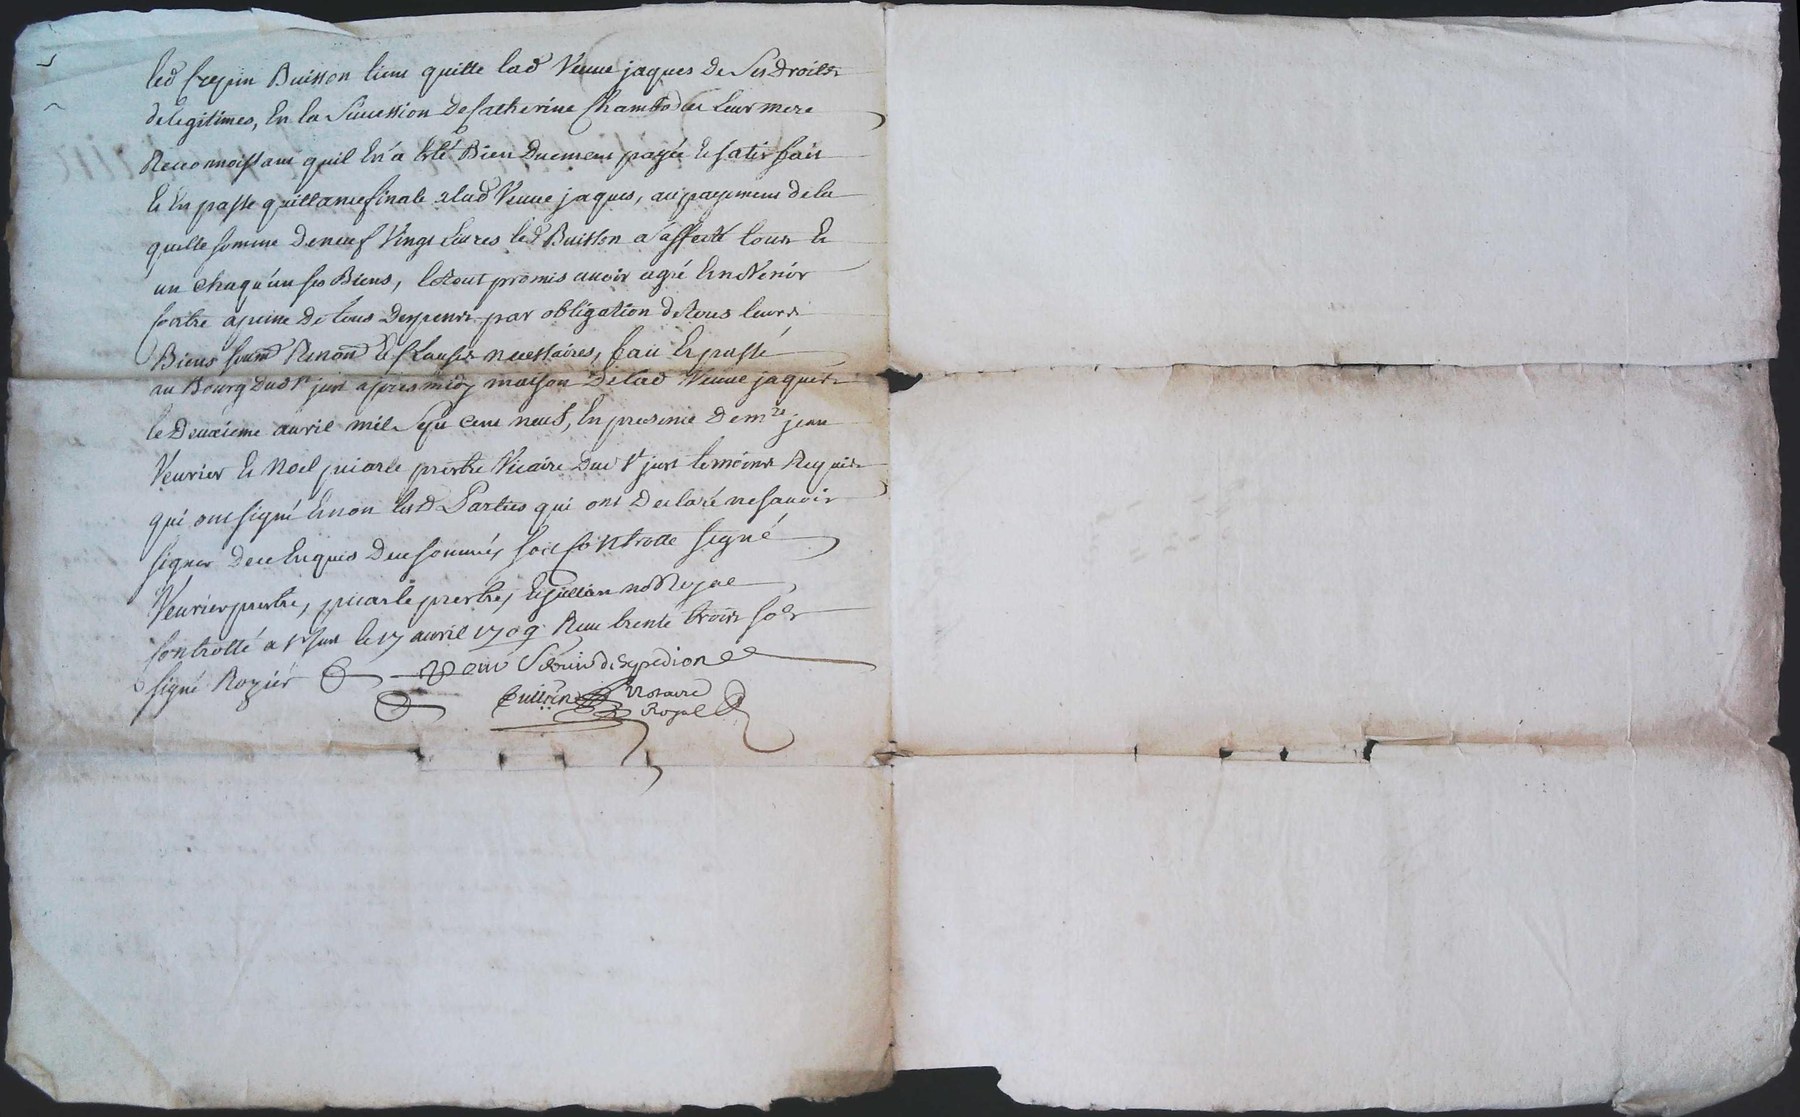 led Crepin Buisson tient quitte lad Veuve jaques de Ses Droits
de legitimes, En la Sucession De Catherine Chambodue Leur mere
Reconnoissant quil En a Esté Bien Duement payée Et satisfait
Et En passe quittance finale alad Veuve jaques, au payement de la
quelle somme De neuf Vingt Livres led Buisson a affecté tous Et
un chaqu'un ses Biens, Le tout promis avoir agré Et n'Venir
Contre a peine De tous Depens par obligation de tous leurs
Biens soumd Renond Et Clauses necessaires, fait Et passé
au Bourg Dud St just apres midy maison De lad Veuve jaques
le Deuxieme avril mil Sept Cent neuf, En presence De mre jean
Veurier Et Noel picarle prestre Vicaire Dud St just temoins Requis
qui ont signé Et non lesd Parties qui ont Declaré ne savoir
signer De ce Enquis Due sommés soit Controllé signé
Veurier prestre, picarle prestre, Et Jullien no Royal
Controllé a St Just le 17 avril 1709 Receu trente trois sols
signé Rozier
d'Expedion
Notaire
Royal